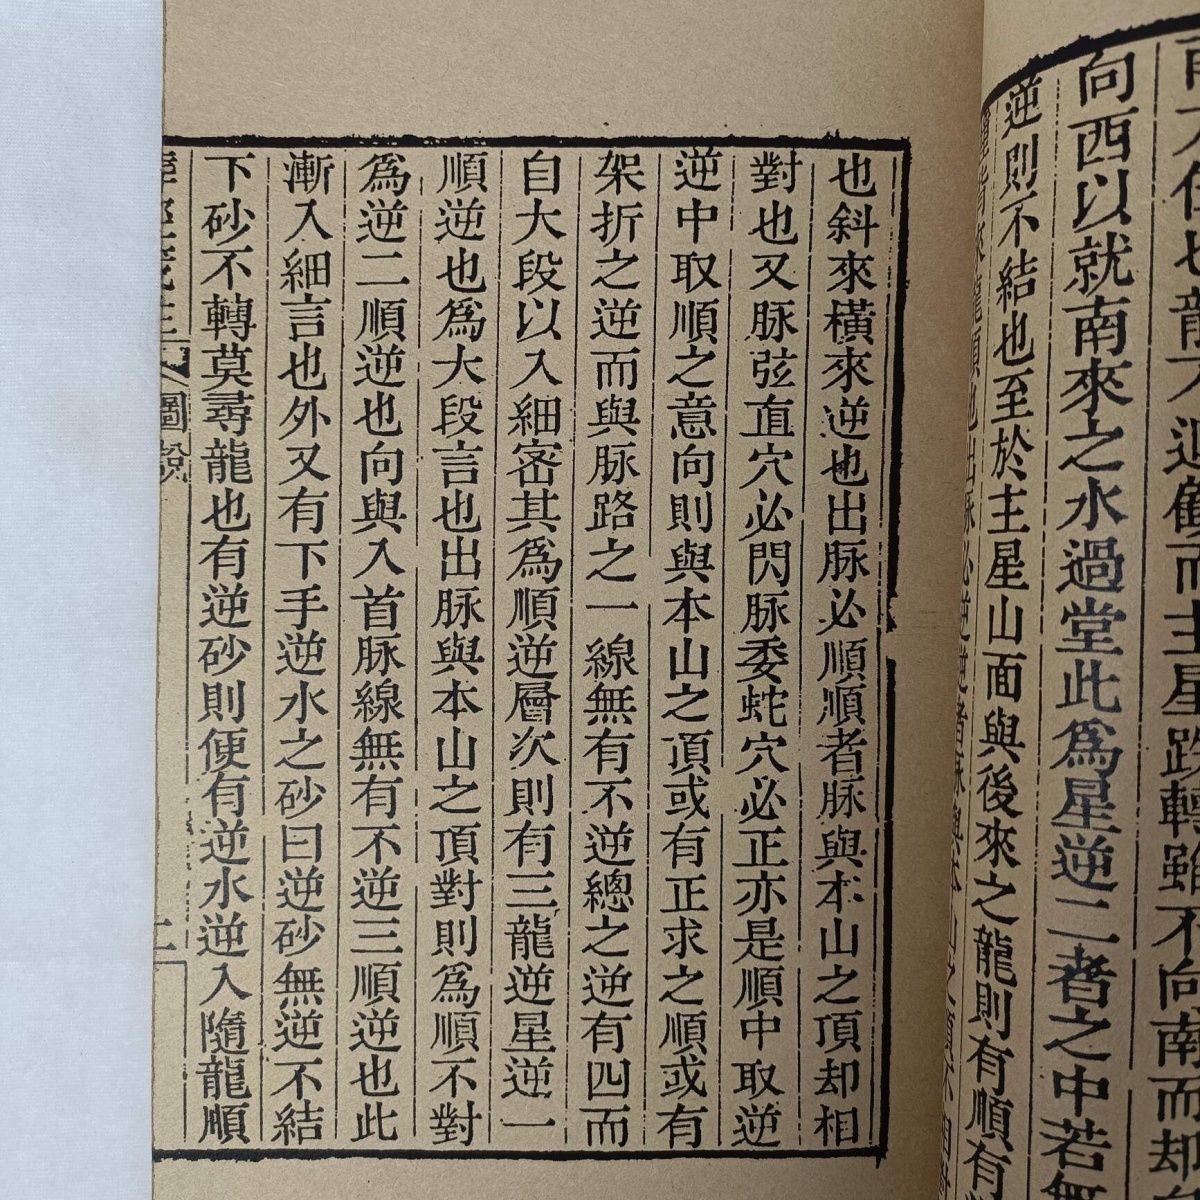 向西以就南來之水過堂此爲星逆二者之中若無
逆則不結也至於主星山面與後來之龍則有順有
也斜來橫來逆也出脉必順順者脉與本山之頂却相
對也又脉弦直穴必閃脉委蛇穴必正亦是順中取逆
逆中取順之意向則與本山之頂或有正求之順或有
架折之逆而與脉路之一線無有不逆總之逆有四而
自大段以入細密其爲順逆層次則有三龍逆星逆一
順逆也爲大段言也出脉與本山之頂對則爲順不對
爲逆二順逆也向與入首脉線無有不逆三順逆也此
漸入細言也外又有下手逆水之砂曰逆砂無逆不結
下砂不轉莫尋龍也有逆砂則便有逆水逆入隨龍順
圖說